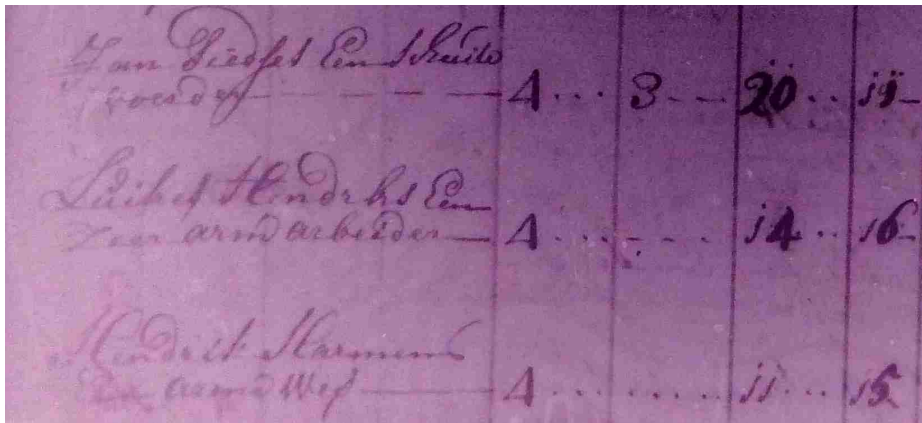 Jan Siedses Een Schuite
voerder — — — — 4 ... 3 - - 20 .. 19
Luities Hendriks Een
Zeer arm arbeider — 4 . . . . - - - . 14 .. 16
Hendrik Harmens
Een arme Wef — 4 . . . . . . . 11 ... 15